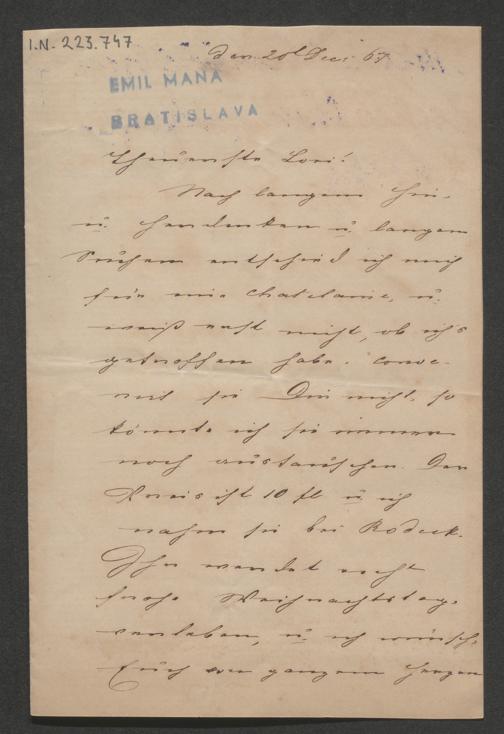 I.N. 223.747
den 20t Dec: 67
EMIL MANA
BRATISLAVA
Theuerste Lori!
Nach langem hin-
u. herdenken u. langem
Suchen entschied ich mich
für eine Chatelaine, u.
weiß erst nicht, ob ich's
getroffen habe. Conve-
nirt sie Dir nicht, so
könnte ich sie immer
noch austauschen. Der
Preis ist 10 fl u. ich
nahm sie bei Rodeck.
Ihr werdet recht
frohe Weihnachtstage
verleben, u. ich wünsche
Euch von ganzem Herzen